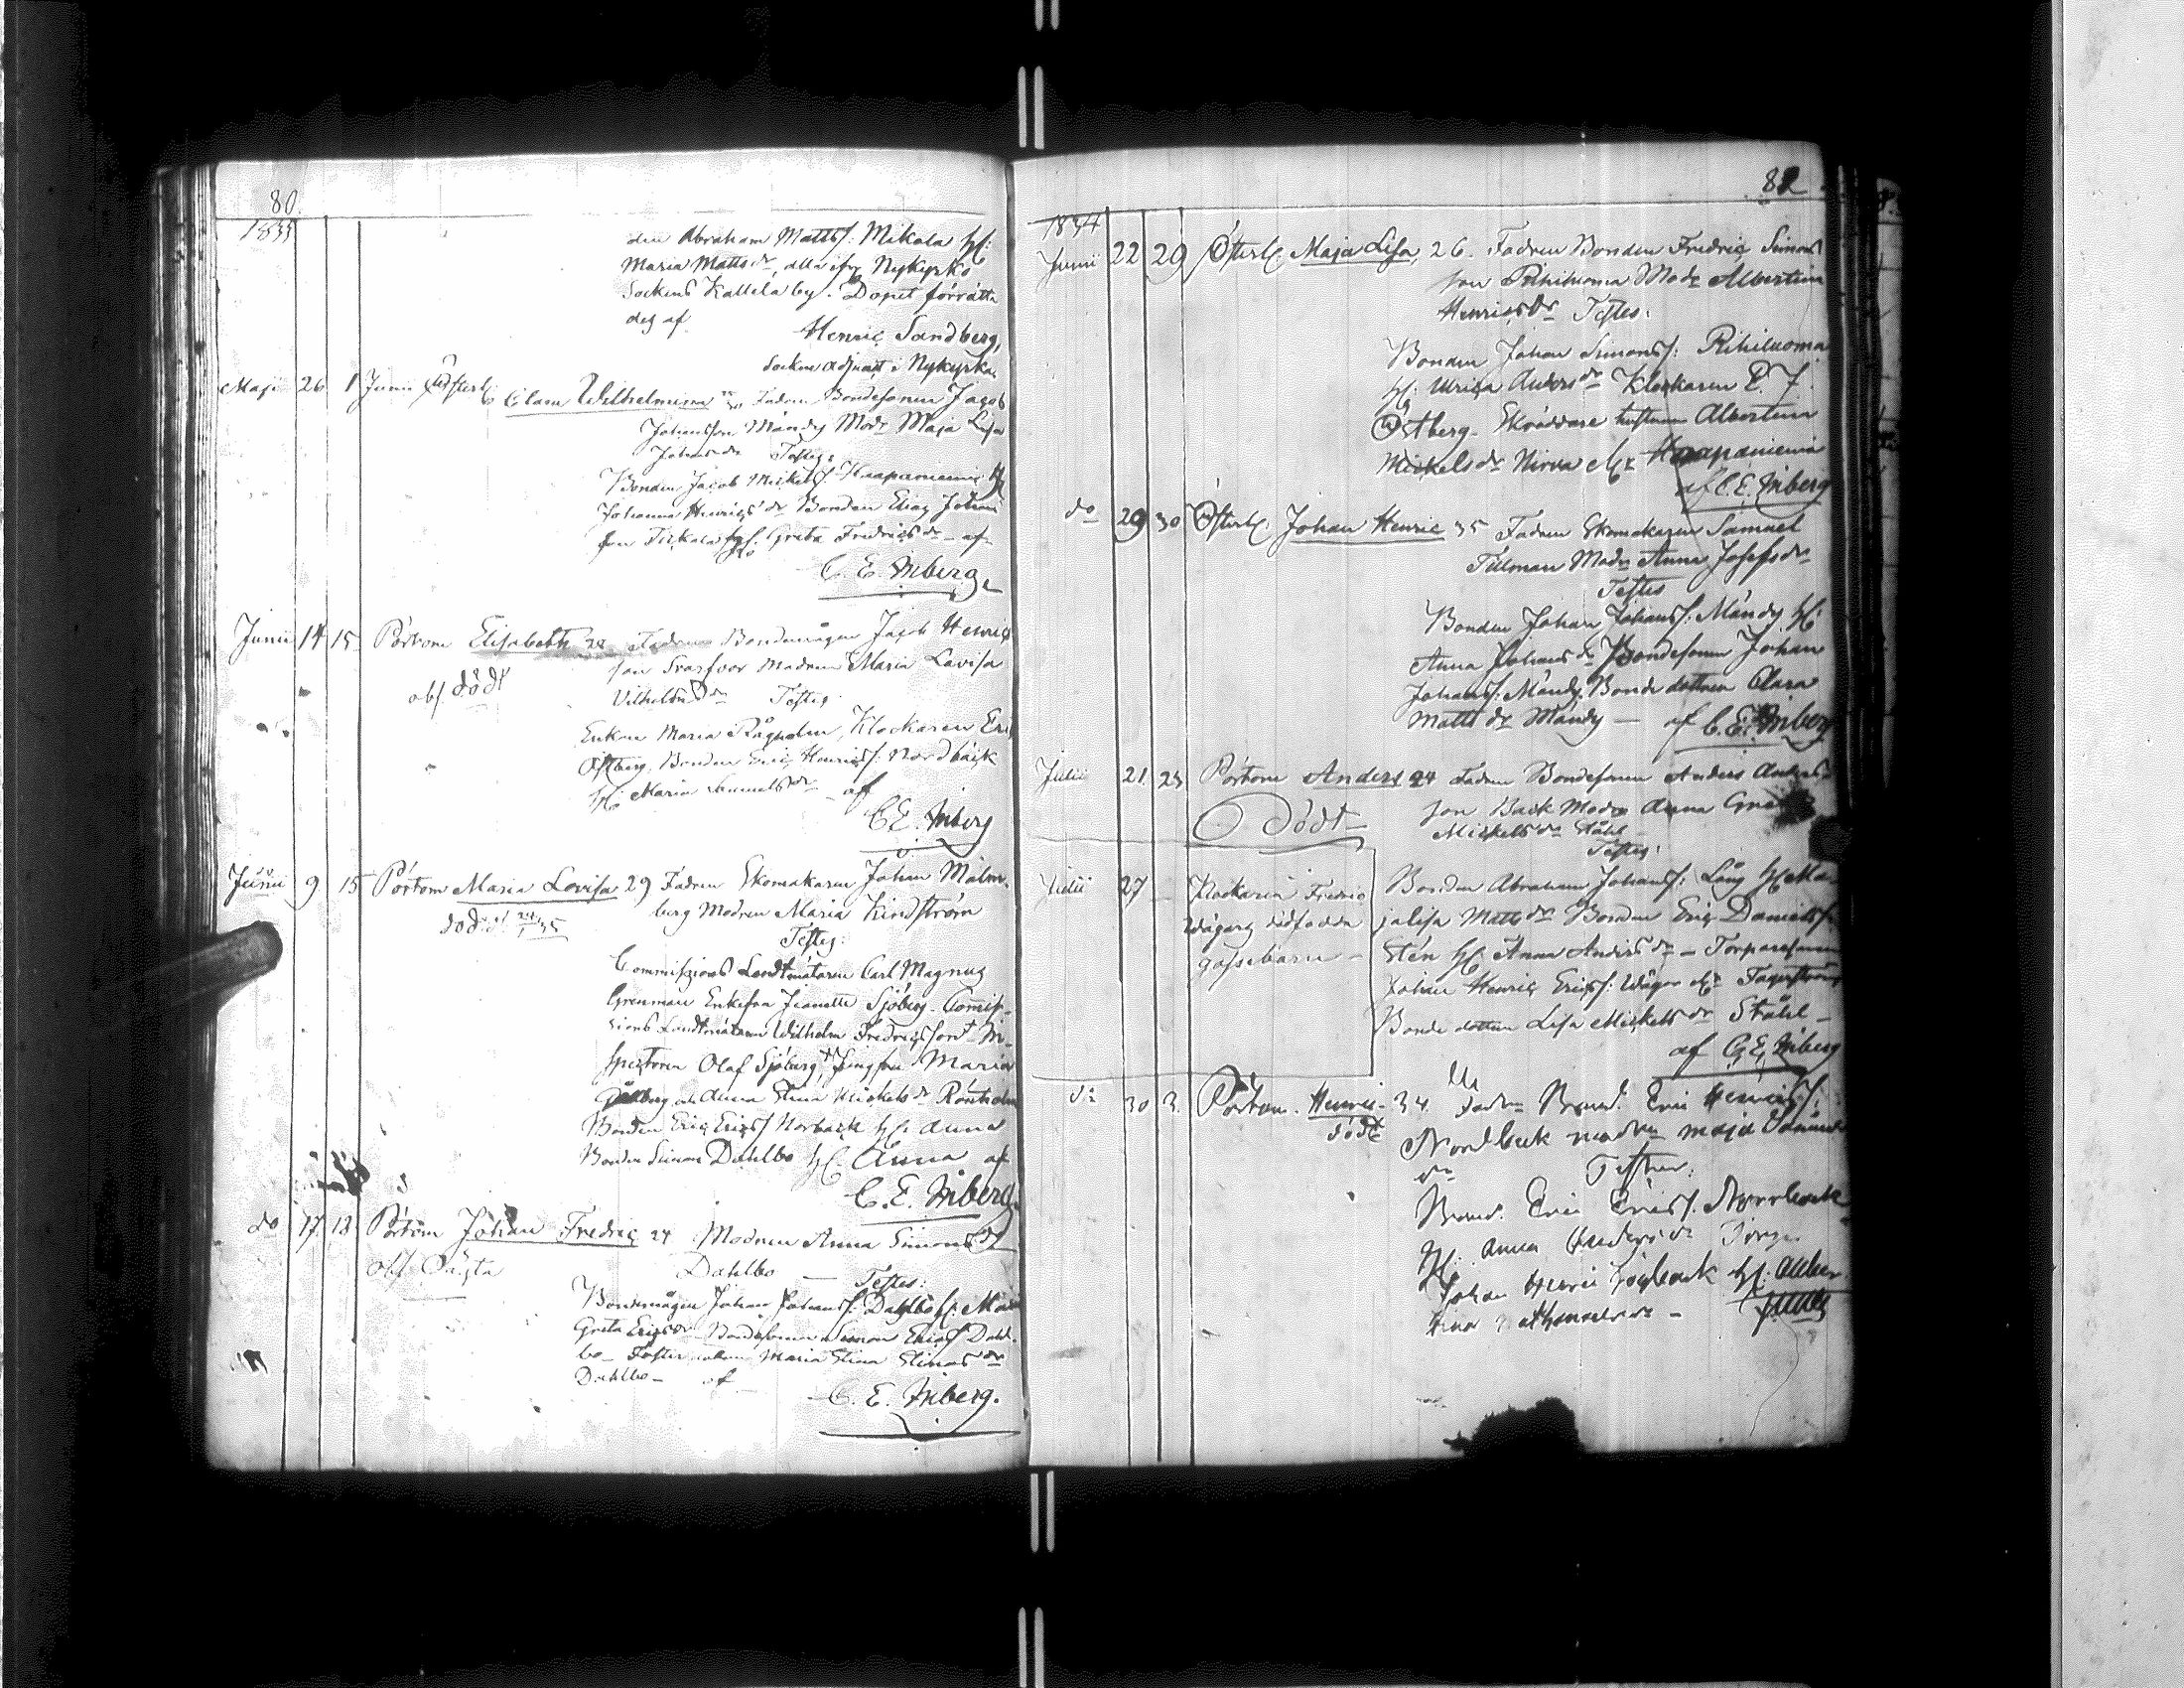 80.
1833
den Abraham Mattsf: Mikola Hf:
Maria Matts dr, alla ifr. Nykyrko
Sockens Kattelaby. Dopet förrätta
des af
Henric Sandberg,
Socken adjunct i Nykyrka.
Maji 26 1 Junii Österb. Clara Wilhelmina Fadren Bondesonen Jacob
Johansson Mándy Modr Maja Lisa
Johans dr Testes:
Bonden Jacob Mickelsf. Haapaniemi Hf
Johanna Henrics dr Bonden Elias Johans
son Hf. Greta Fredrics dr - af
C. E. Inberg
Junii 14 15 Pörtom Elisabeth 28 Fadren Bondemågen Jacob Henrics
son Svarfvar modren Maria Lovisa
obs. dödt
Vilhelms Dr Testes
Enkan Maria Klockaren Eric
Östberg. Bonden Eric Henricsf: Nordbäck
Hf: Maria Samuels dr af
C. E. Inberg
Junii 9 15 Pörtom Maria Lovisa 29 Fadren Skomakaren Johan Malm-
berg Modren Maria Lindström
död d.
Testes:
Commissions Landtmätaren Carl Magnus
Grenman Enkefru Jeanette Sjöberg. Commis-
sions Landtmätaren Wilhelm Fredricsson In-
spectoren Olof Sjöberg, Jungfru Maria
och Anna Stina Mickels dr Rönholm
Bonden Eric Ericsf Norback Hf. Anna
Bonden Simon Dahlbo Hf. Anna af
C. E. Inberg.
do 17. 18 Pörtom Johan Fredric 24 Modren Anna Simons dr
obs. Oägta
Dahlbo — Testes:
Bondemågen Johan Johansf. Dahlbo Hf. Maja
Greta Erics dr Bondesonen Simon Ericsf Dahl-
bo Maria Stina Simons dr
Dahlbo - af
C. E. Inberg.
82
1834
Junii 22 29 Österb. Maja Lisa, 26. Fadren Bonden Fredric Simons
son Rihiluoma Modr Albertina
Henrics dr Testes:
Bonden Johan Simonsf: Rihiluoma
Hf: Ulrica Anders dr Klockaren E. J.
Östberg. Skräddare hustrun Albertina
Mickels dr Nirva Haapaniemi
af C. E. Inberg
do 29 30 Österb. Johan Henric 35 Fadren Skomakaren Samuel
Tillman Modr Anna Josefs dr
Testes
Bonden Johan Johansf: Mándy Hf:
Anna Johans dr Bondesonen Johan
Johansf: Mándy. Bonde dottren Clara
Matts dr Mándy — af C. E. Inberg
Julii 21. 23 Pörtom Anders 24 Fadren Bondesonen Anders Anders-
son Back Modr Anna Greta
Dödt
Mickels dr Ståhl
Testes:
Julii 27 Klockaren Fredric
Wägars dödfödda
gossebarn -
Bonden Abraham Johansf: Lång Hf. Ma-
jalisa Matts dr Bonden Eric Danielsf:
Stén Hf. Anna Anders dr - Torparesonen
Johan Henric Ericsf: Wägar
Bonde dottren Lisa Mickels dr Ståhl -
af C. E. Inberg
do 30 3. Pörtom. Henric - 34. Fadren Bond. Eric Henricsf:
dödt
Nordbäck modren Maja
dr Testes:
Bond. Eric Ericsf. Norrback
Hf: Anna
Johan Henric Hf: Alber
tina